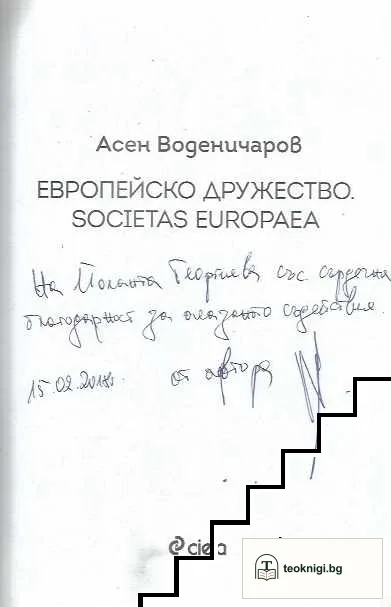 Асен Воденичаров
ЕВРОПЕЙСКО ДРУЖЕСТВО.
SOCIETAS EUROPAEA
На Йоланта Георгиева със сърдечна
благодарност за оказаното съдействие.
15.02.2018г. от автора
ciela
teoknigi.bg